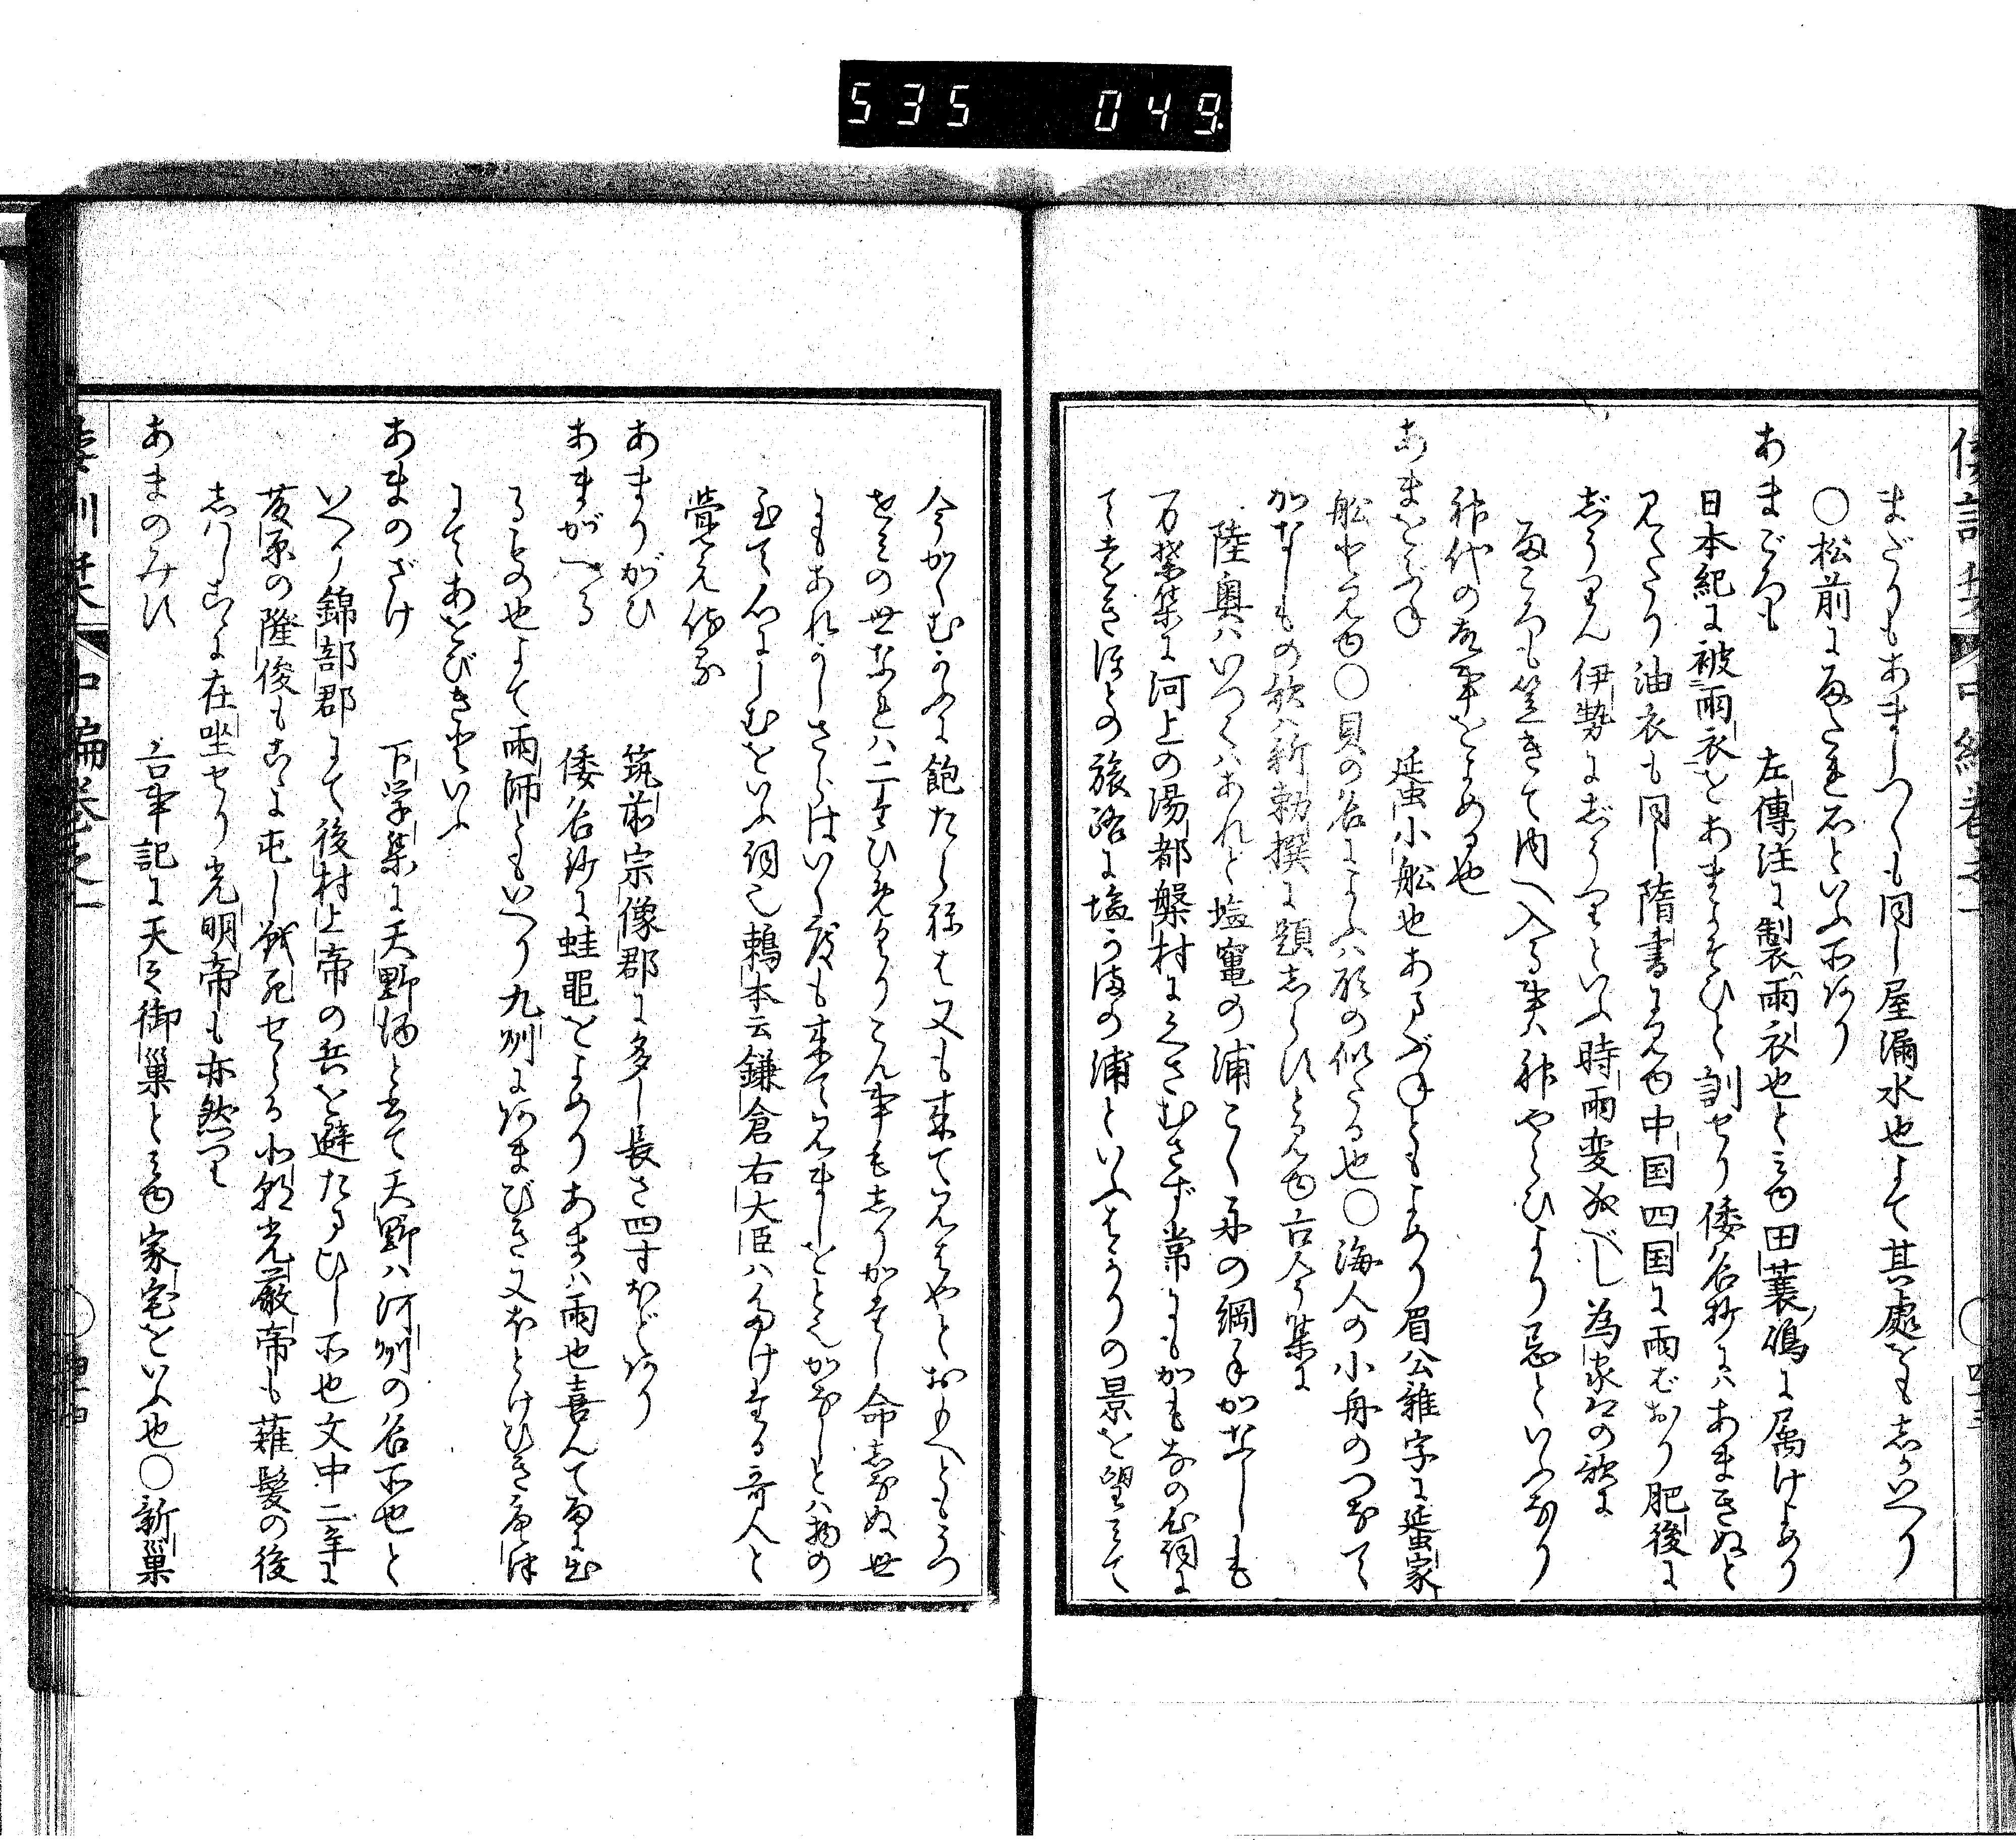 535 049
倭訓栞 中編巻之一
まだりもあましつくも同し屋漏水也よて其處をもしかいへり
〇松前に雨たれ石といふ所あり
あまごろも 左傳注に製雨衣也とみゆ田蓑嶋に属けよめり
日本紀に被雨衣をあまよそひと訓せり倭名抄にはあまきぬと
見えたり油衣も同し隋書に見ゆ中国四国に雨ばおり肥後に
志うりん伊勢に志うりといふ時雨変なべし為家卿の歌に
雨ころも笠きて内へ入る事は神やらひより忌といふなり
神代の故事をよめる也
あまをぶね 蜑小舩也あまぶねともよめり眉公雑字に蜑家
舩と見ゆ〇貝の名によふは形の似たる也〇海人の小舟のつなて
かなしもの歌は新勅撰に題しらすとみゆ古今集に
陸奥はいつくはあれと塩竃の浦こく舟の綱手かなしも
万葉集に河上の湯都磐村にくさむさず常にもかもなの古詞に
てとほきほとの旅路に塩かまの浦といふはかりの景を望みて
今かくむかふに飽たらねは又も来て見はやとおもへともうつ
せみの世なれは二たひめくりこん事もしりかたし命しなぬ世
にもあれかしさらはいく度も来て見ましをとその かなしとは物の
至て心にしむをいふ詞也鵜本云鎌倉右大臣はたけたる哥人と
覚え侍る
あまりがひ 筑前宗像郡に多し長さ四寸ほどあり
あまがへる 倭名抄に蛙黽をよめりあまは雨也喜んて雨に出
るもの也よて雨師ともいへり九州にあまびき又ほとけひき唐津
にてあをびきといふ
あまのざけ 下学集に天野酒と書て天野は河州の名所也と
いへり錦部郡にて後村上帝の兵を避たまひし所也文中二年に
藤原の隆俊もこゝに屯し戦死せらる北朝光厳帝も薙髪の後
志はしこゝに在坐せり光明帝も亦然り
あまのみす 古事記に天之御巣とみゆ家宅をいふ也〇新巣
倭訓栞 中編巻之一